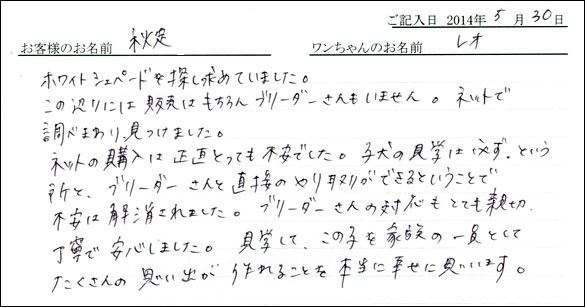 ご記入日 2014年 5月 30日
お客様のお名前 秋定 ワンちゃんのお名前 レオ
ホワイトシェパードを探し求めていました。
この辺りには販売はもちろんブリーダーさんもいません。ネットで
調べまわり、見つけました。
ネットの購入は正直とっても不安でした。子犬の見学は必ず、という
所と、ブリーダーさんと直接のやり取りができるということで
不安は解消されました。ブリーダーさんの対応もとても親切、
丁寧で安心しました。見学して、この子を家族の一員として
たくさんの思い出が作れることを本当に幸せに思います。